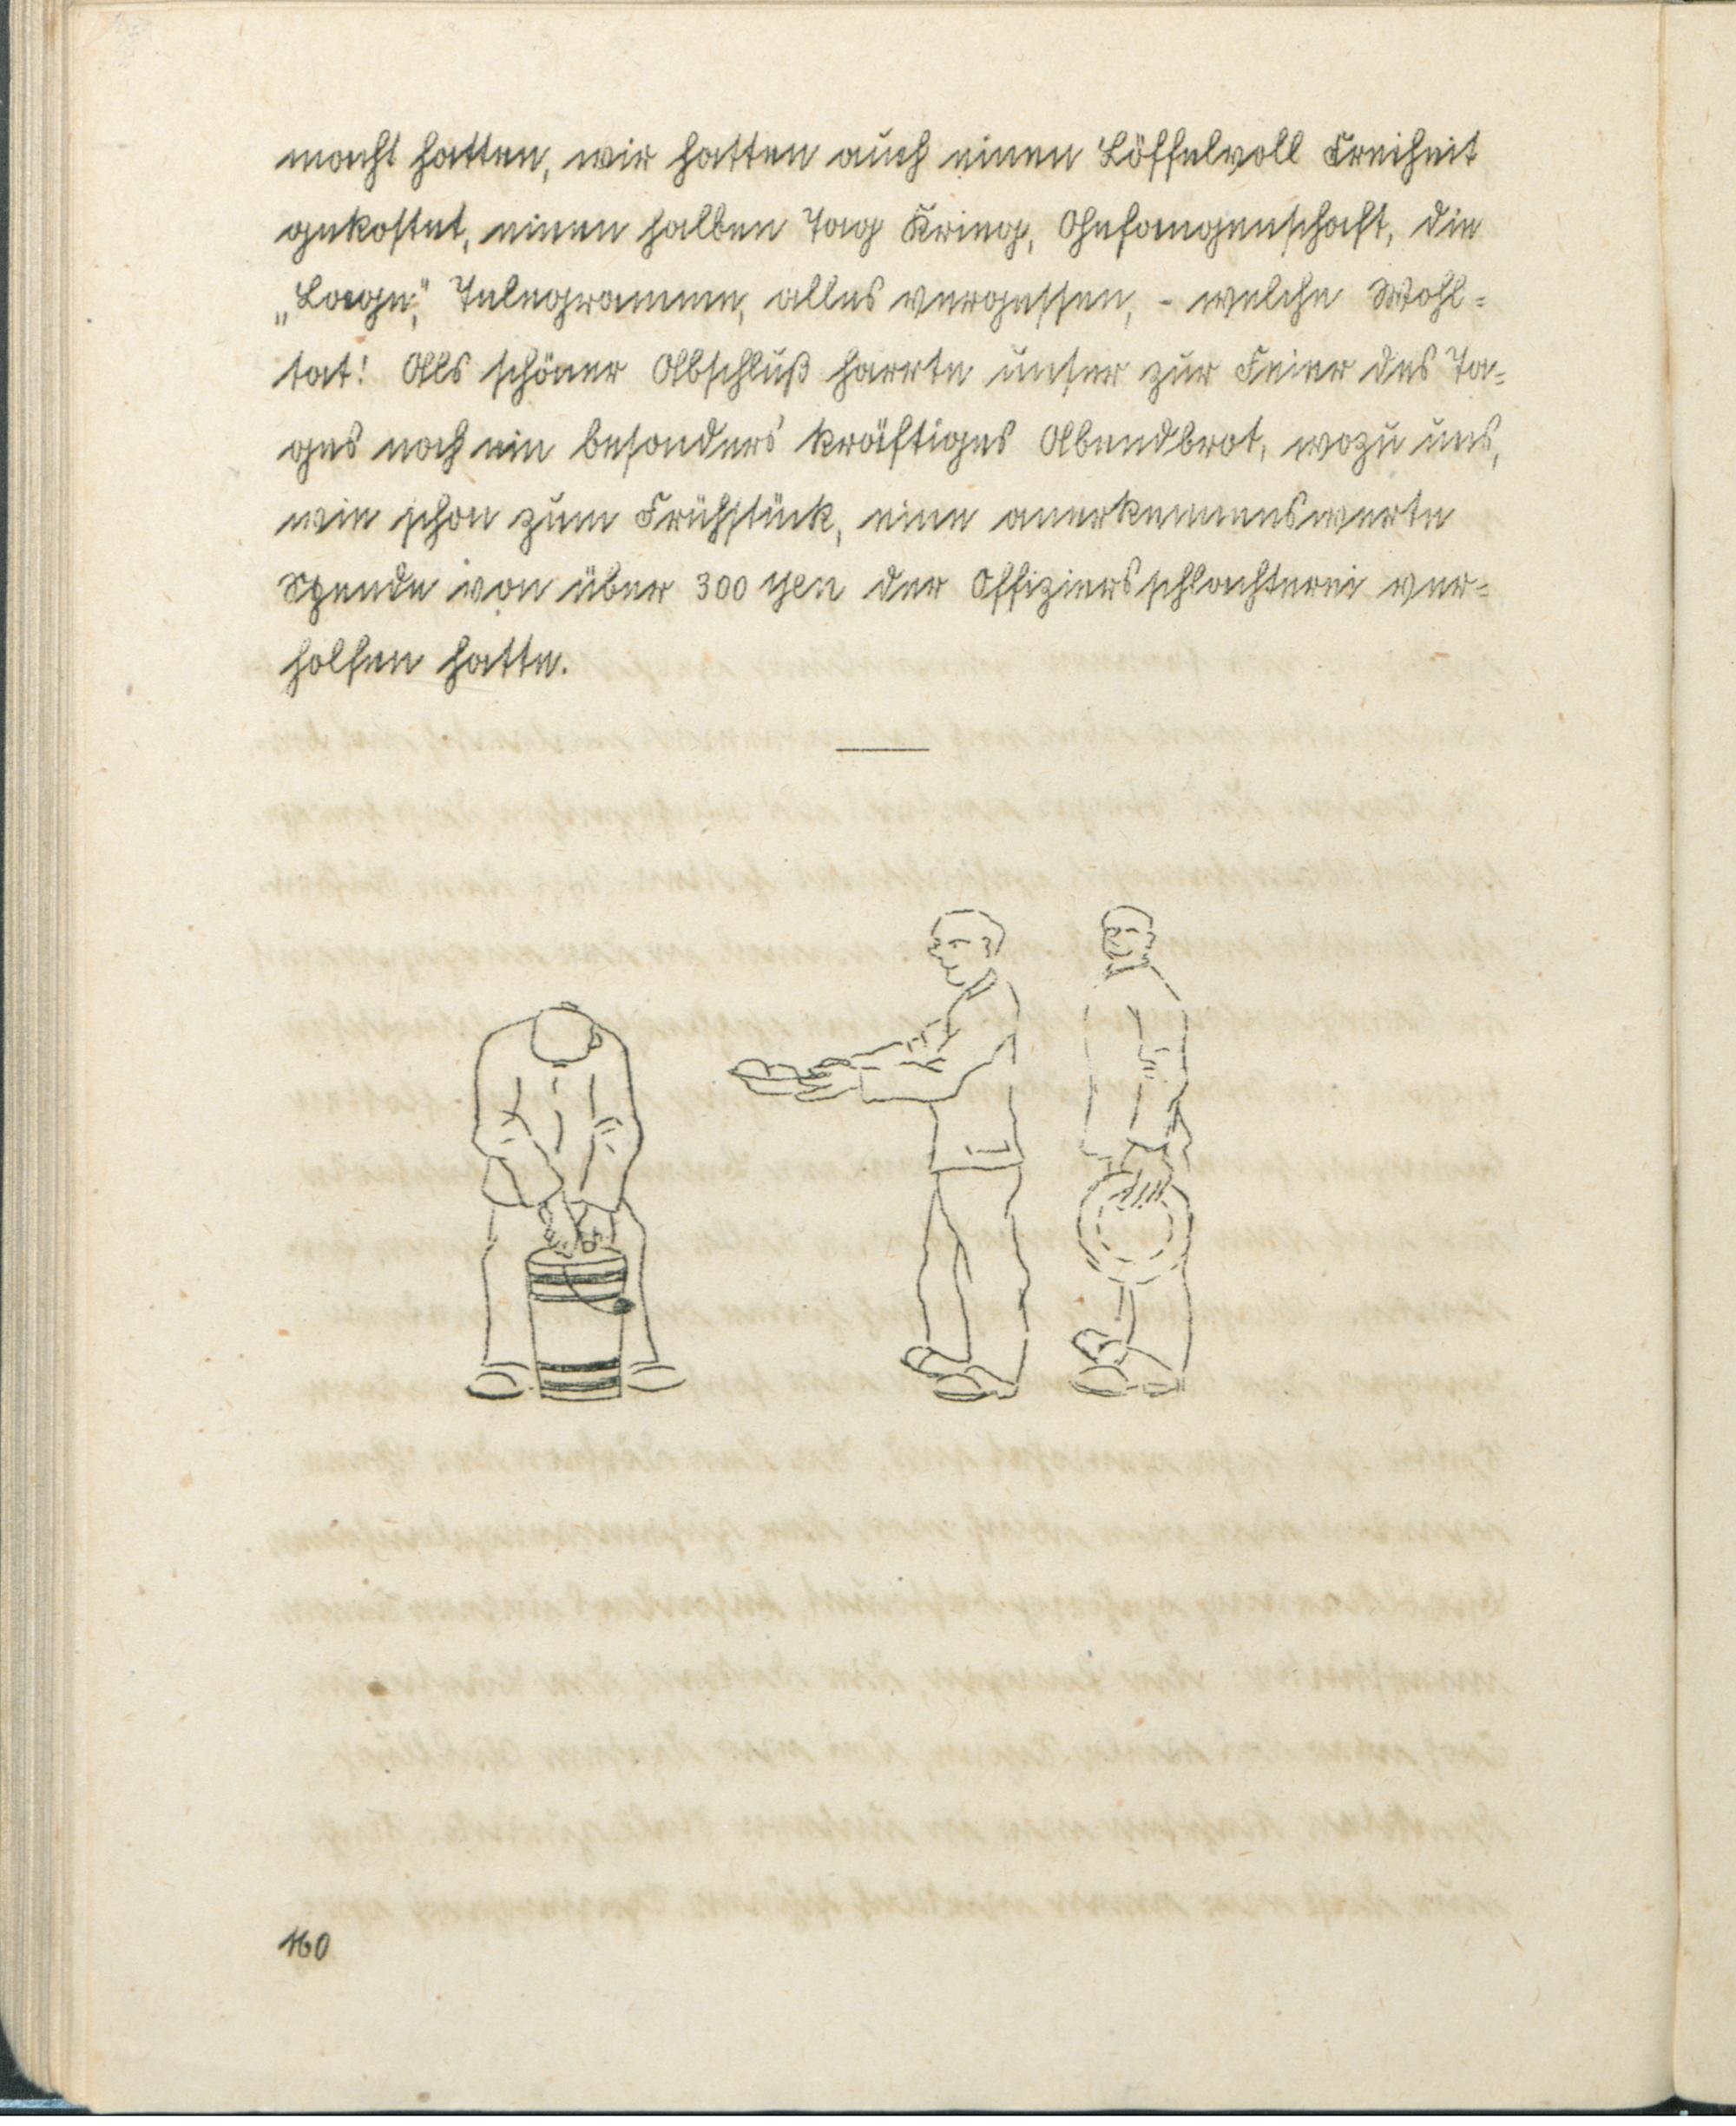 macht hatten, wir hatten auch einen Löffelvoll Freiheit
gekostet, einen halben Tag Krieg, Gefangenschaft, die
„Lage“, Telegramme, alles vergessen, - welche Wohl=
tat! Als schöner Abschluß harrte unser zur Feier des Ta=
ges noch ein besonders kräftiges Abendbrot, wozu uns,
wie schon zum Frühstück, eine anerkennenswerte
Spende von über 300 Yen der Offiziersschlachterei ver=
holfen hatte.
160